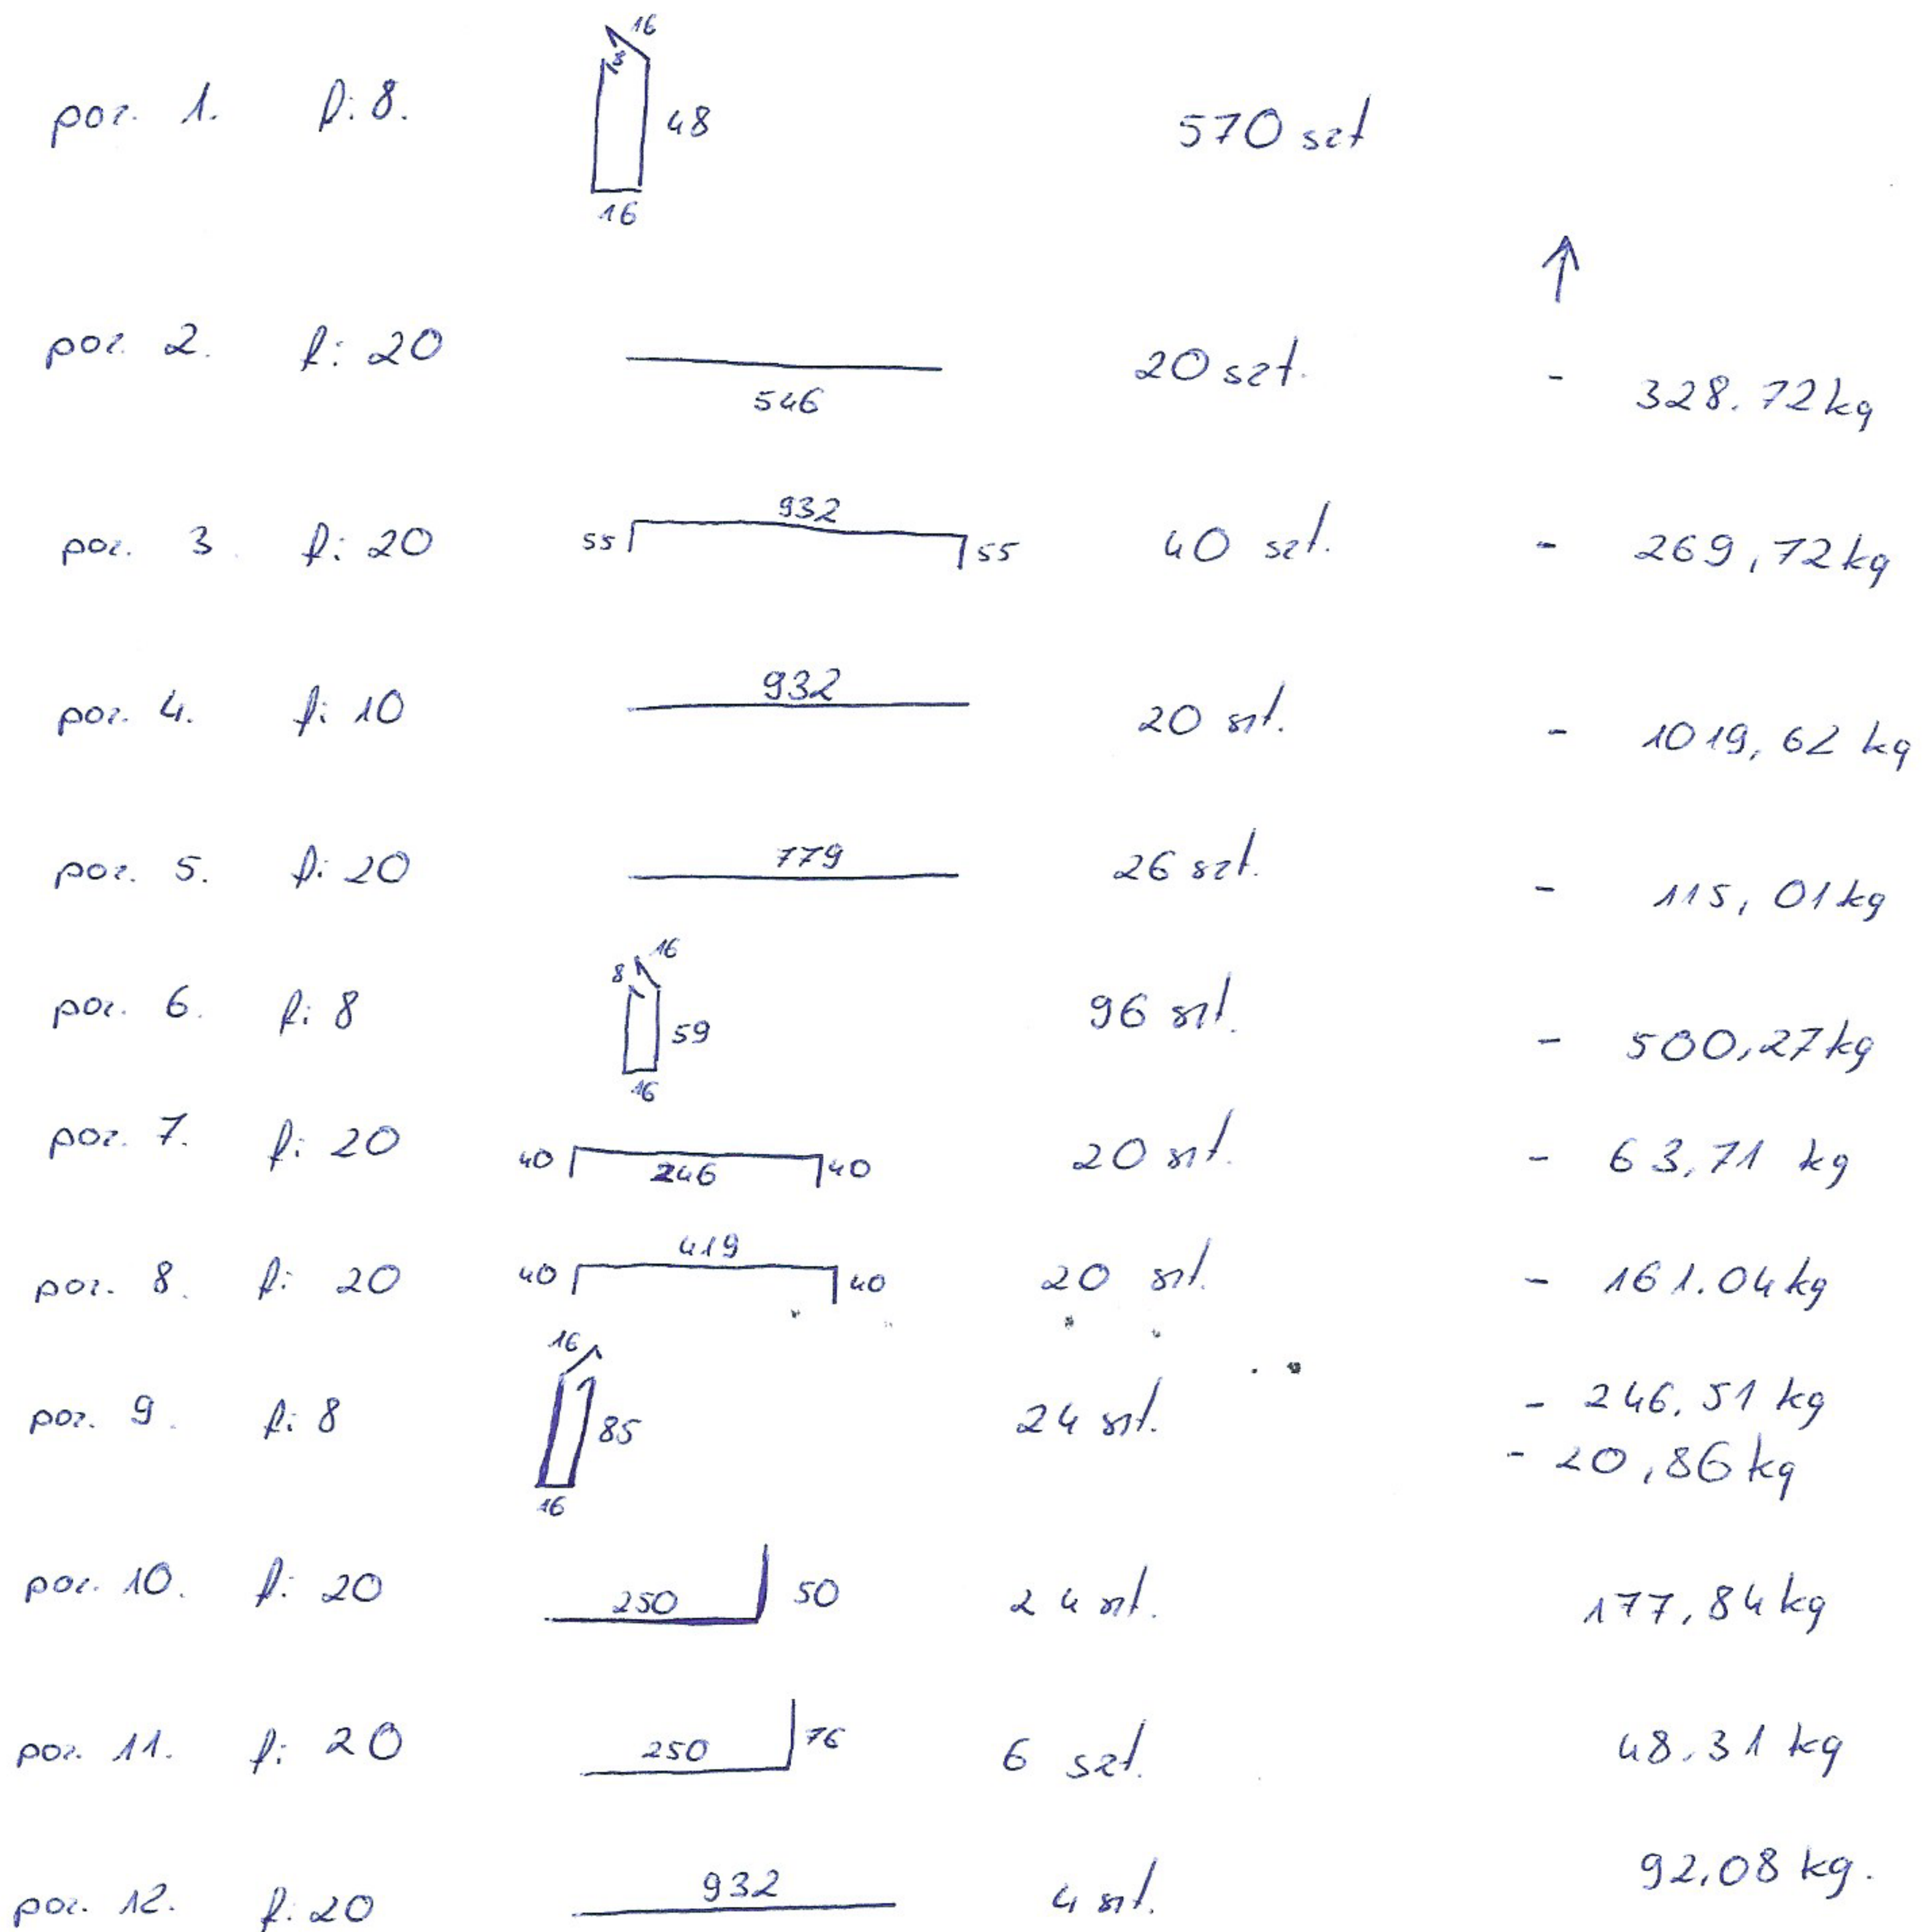 poz. 1. fi 8. 16 8 48 16 570 szt
↑
poz. 2. fi: 20 546 20 szt. - 328.72 kg
poz. 3. fi: 20 55 932 55 40 szt. - 269,72 kg
poz. 4. fi: 10 932 20 szt. - 1019,62 kg
poz. 5. fi: 20 779 26 szt. - 115,01 kg
poz. 6. fi: 8 8 16 59 16 96 szt. - 500,27 kg
poz. 7. fi: 20 40 246 40 20 szt. - 63,71 kg
poz. 8. fi: 20 40 419 40 20 szt. - 161.04 kg
poz. 9. fi: 8 16 85 16 24 szt. - 246,51 kg
- 20,86 kg
poz. 10. fi: 20 250 50 24 szt. 177,84 kg
poz. 11. fi: 20 250 76 6 szt. 48.31 kg
poz. 12. fi: 20 932 4 szt. 92,08 kg.